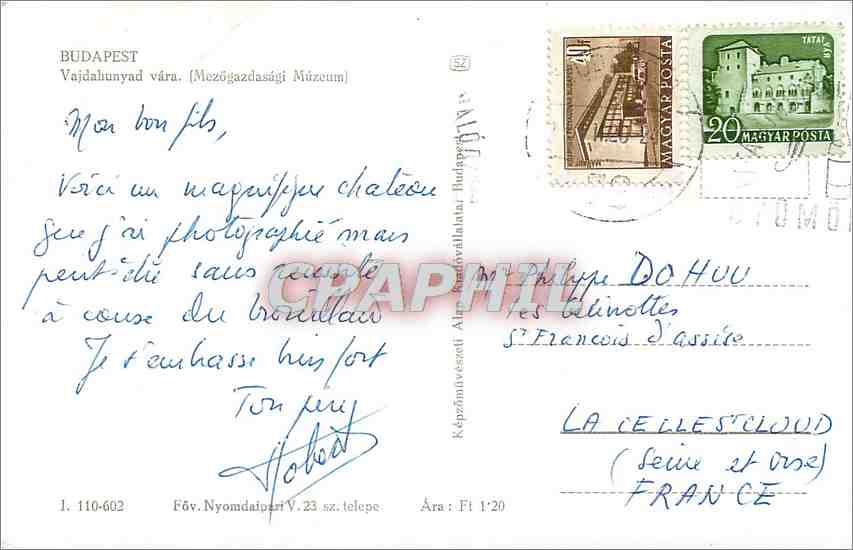 BUDAPEST
Vajdahunyad vára. (Mezőgazdasági Múzeum)
Mon bon fils,
Voici un magnifique chateau
que j'ai photographié mais
peut être sans réussite
à cause du brouillard
Je t'embrasse bien fort
Ton père
I. 110-602
Föv. Nyomdaipari V. 23 sz. telepe
Ára : Ft 1'20
Képzőművészeti Alap Kiadóvállalatai Budapest
SZ
40f
MAGYAR POSTA
TATA
20
MAGYAR POSTA
Mr Philippe DOHUU
St Francois d'assise
LA CELLE St CLOUD
(Seine et Oise)
FRANCE
CPAPHIL